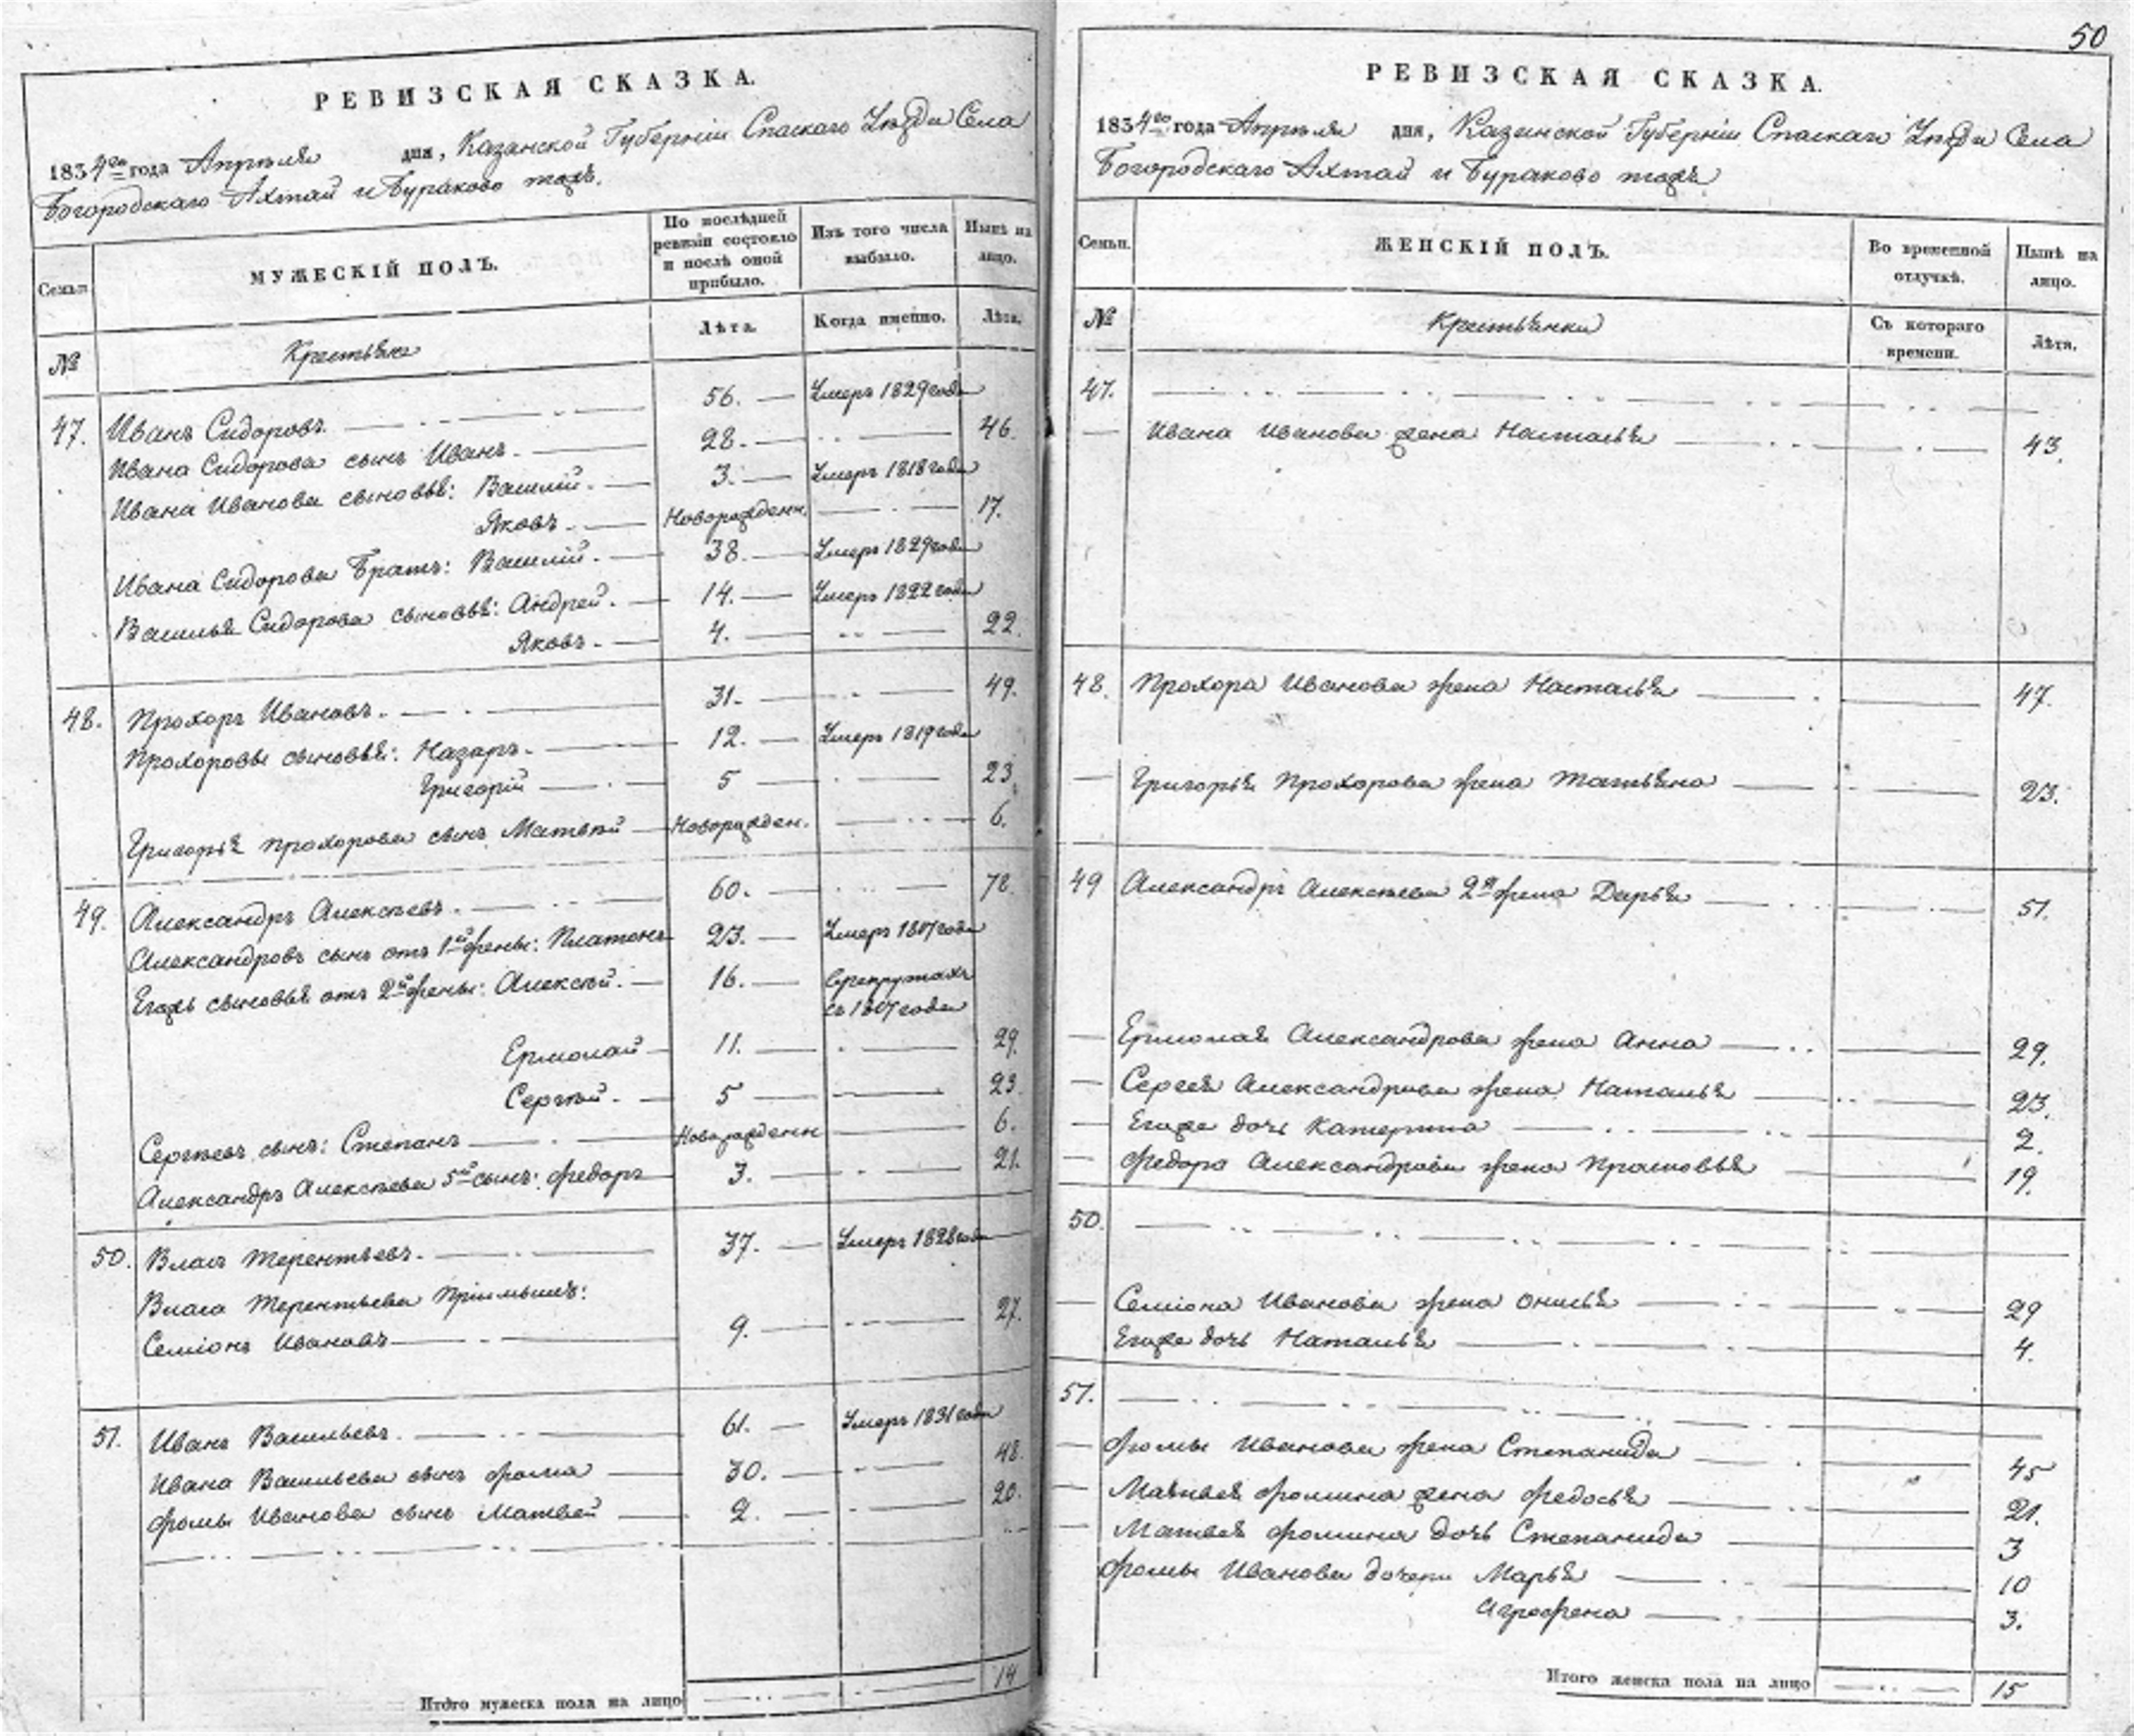 РЕВИЗСКАЯ СКАЗКА.
1834го года Апреля дня, Казанской Губерніи Спаскаго Уезда Села
Богородскаго Ахтай и Бураково тожъ.
Семьи.
МУЖЕСКІЙ ПОЛЪ.
По послѣдней ревизіи состояло и послѣ оной прибыло.
Изъ того числа выбыло.
Нынѣ на лицо.
№
Крестьяне
Лѣта.
Когда именно.
Лѣта.
47. Иванъ Сидоровъ. 56. Умеръ 1829 года
Ивана Сидорова сынъ Иванъ. 28. 46.
Ивана Иванова сыновья: Василій. 3. Умеръ 1818 года
Яковъ. Новорожденн. 17.
Ивана Сидорова братъ: Василій. 38. Умеръ 1829 года
Василья Сидорова сыновья: Андрей. 14. Умеръ 1822 года
Яковъ. 4. 22.
48. Прохоръ Ивановъ. 31. 49.
Прохоровы сыновья: Назаръ. 12. Умеръ 1819 года
Григорій 5 23.
Григорья Прохорова сынъ Матвѣй Новорожден. 6.
49. Александръ Алексѣевъ. 60. 78.
Александровъ сынъ отъ 1й жены: Платонъ 23. Умеръ 1807 года
Егожъ сыновья отъ 2й жены: Алексѣй. 16. Врекрутахъ
съ 1807 года
Ермолай 11. 29.
Сергѣй. 5 23.
Сергѣевъ сынъ: Степанъ Новорожденн 6.
Александръ Алексѣева 5й сынъ: Федоръ 3. 21.
50. Власъ Терентьевъ. 37. Умеръ 1828 года
Власа Терентьева Пріимышъ:
Семіонъ Ивановъ 9. 27.
51. Иванъ Васильевъ. 61. Умеръ 1831 года
Ивана Васильева сынъ Фома 30. 48.
Фомы Иванова сынъ Матвей 2. 20.
Итого мужеска пола на лицо 14
50
РЕВИЗСКАЯ СКАЗКА.
1834го года Апреля дня, Казанской Губерніи Спаскаго Уезда Села
Богородскаго Ахтай и Бураково тожъ
Семьи.
ЖЕНСКІЙ ПОЛЪ.
Во временной отлучкѣ.
Нынѣ на лицо.
№
Крестьянки
Съ котораго времени.
Лѣта.
47.
Ивана Иванова жена Наталья 43.
48. Прохора Иванова жена Наталья 47.
Григорья Прохорова жена Татьяна 23.
49 Александръ Алексѣева 2я жена Дарья 51.
Ермолая Александрова жена Анна 29.
Сергея Александрова жена Наталья 23.
Егоже дочь Катерина 2.
Федора Александрова жена Прасковья 19.
50.
Семіона Иванова жена Онисья 29
Егоже дочь Наталья 4.
51.
Фомы Иванова жена Степанида 45
Матвея Фомина жена Федосья 21.
Матвея Фомина дочь Степанида 3
Фомы Иванова дочери Марья 10
Агрофена 3.
Итого женска пола на лицо 15